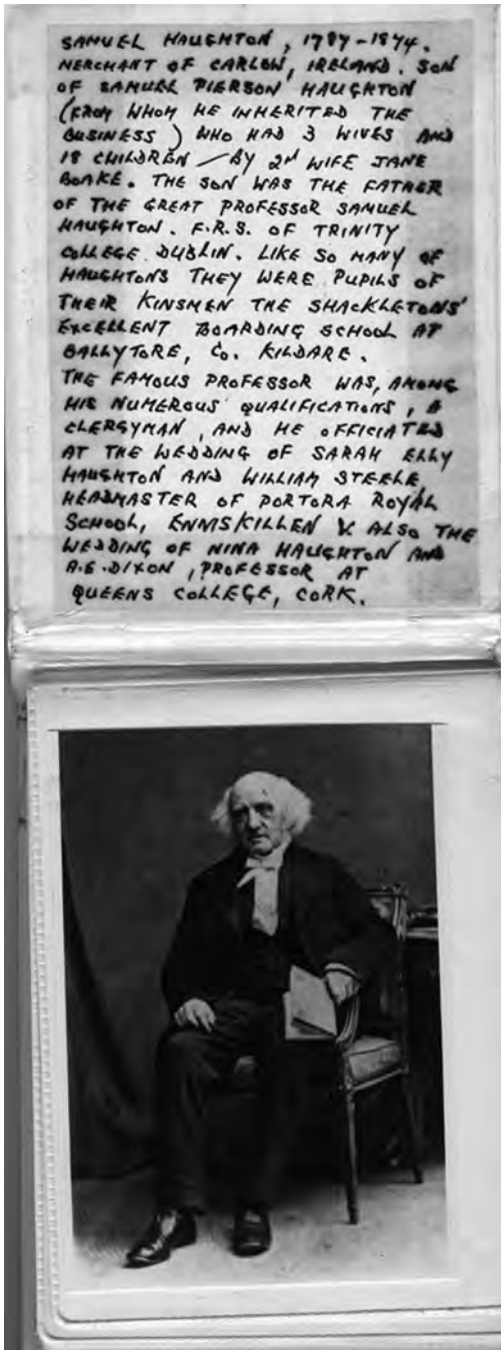 SAMUEL HAUGHTON, 1787-1874.
MERCHANT OF CARLOW, IRELAND. SON
OF SAMUEL PIERSON HAUGHTON
(FROM WHOM HE INHERITED THE
BUSINESS) WHO HAD 3 WIVES AND
18 CHILDREN - BY 2ND WIFE JANE
BOAKE. THE SON WAS THE FATHER
OF THE GREAT PROFESSOR SAMUEL
HAUGHTON. F.R.S. OF TRINITY
COLLEGE DUBLIN. LIKE SO MANY OF
HAUGHTONS THEY WERE PUPILS OF
THEIR KINSMEN THE SHACKLETONS'
EXCELLENT BOARDING SCHOOL AT
BALLYTORE, Co. KILDARE.
THE FAMOUS PROFESSOR WAS, AMONG
HIS NUMEROUS QUALIFICATIONS, A
CLERGYMAN, AND HE OFFICIATED
AT THE WEDDING OF SARAH ELLY
HAUGHTON AND WILLIAM STEELE,
HEADMASTER OF PORTORA ROYAL
SCHOOL, ENNISKILLEN & ALSO THE
WEDDING OF NINA HAUGHTON AND
A.E. DIXON, PROFESSOR AT
QUEENS COLLEGE, CORK.